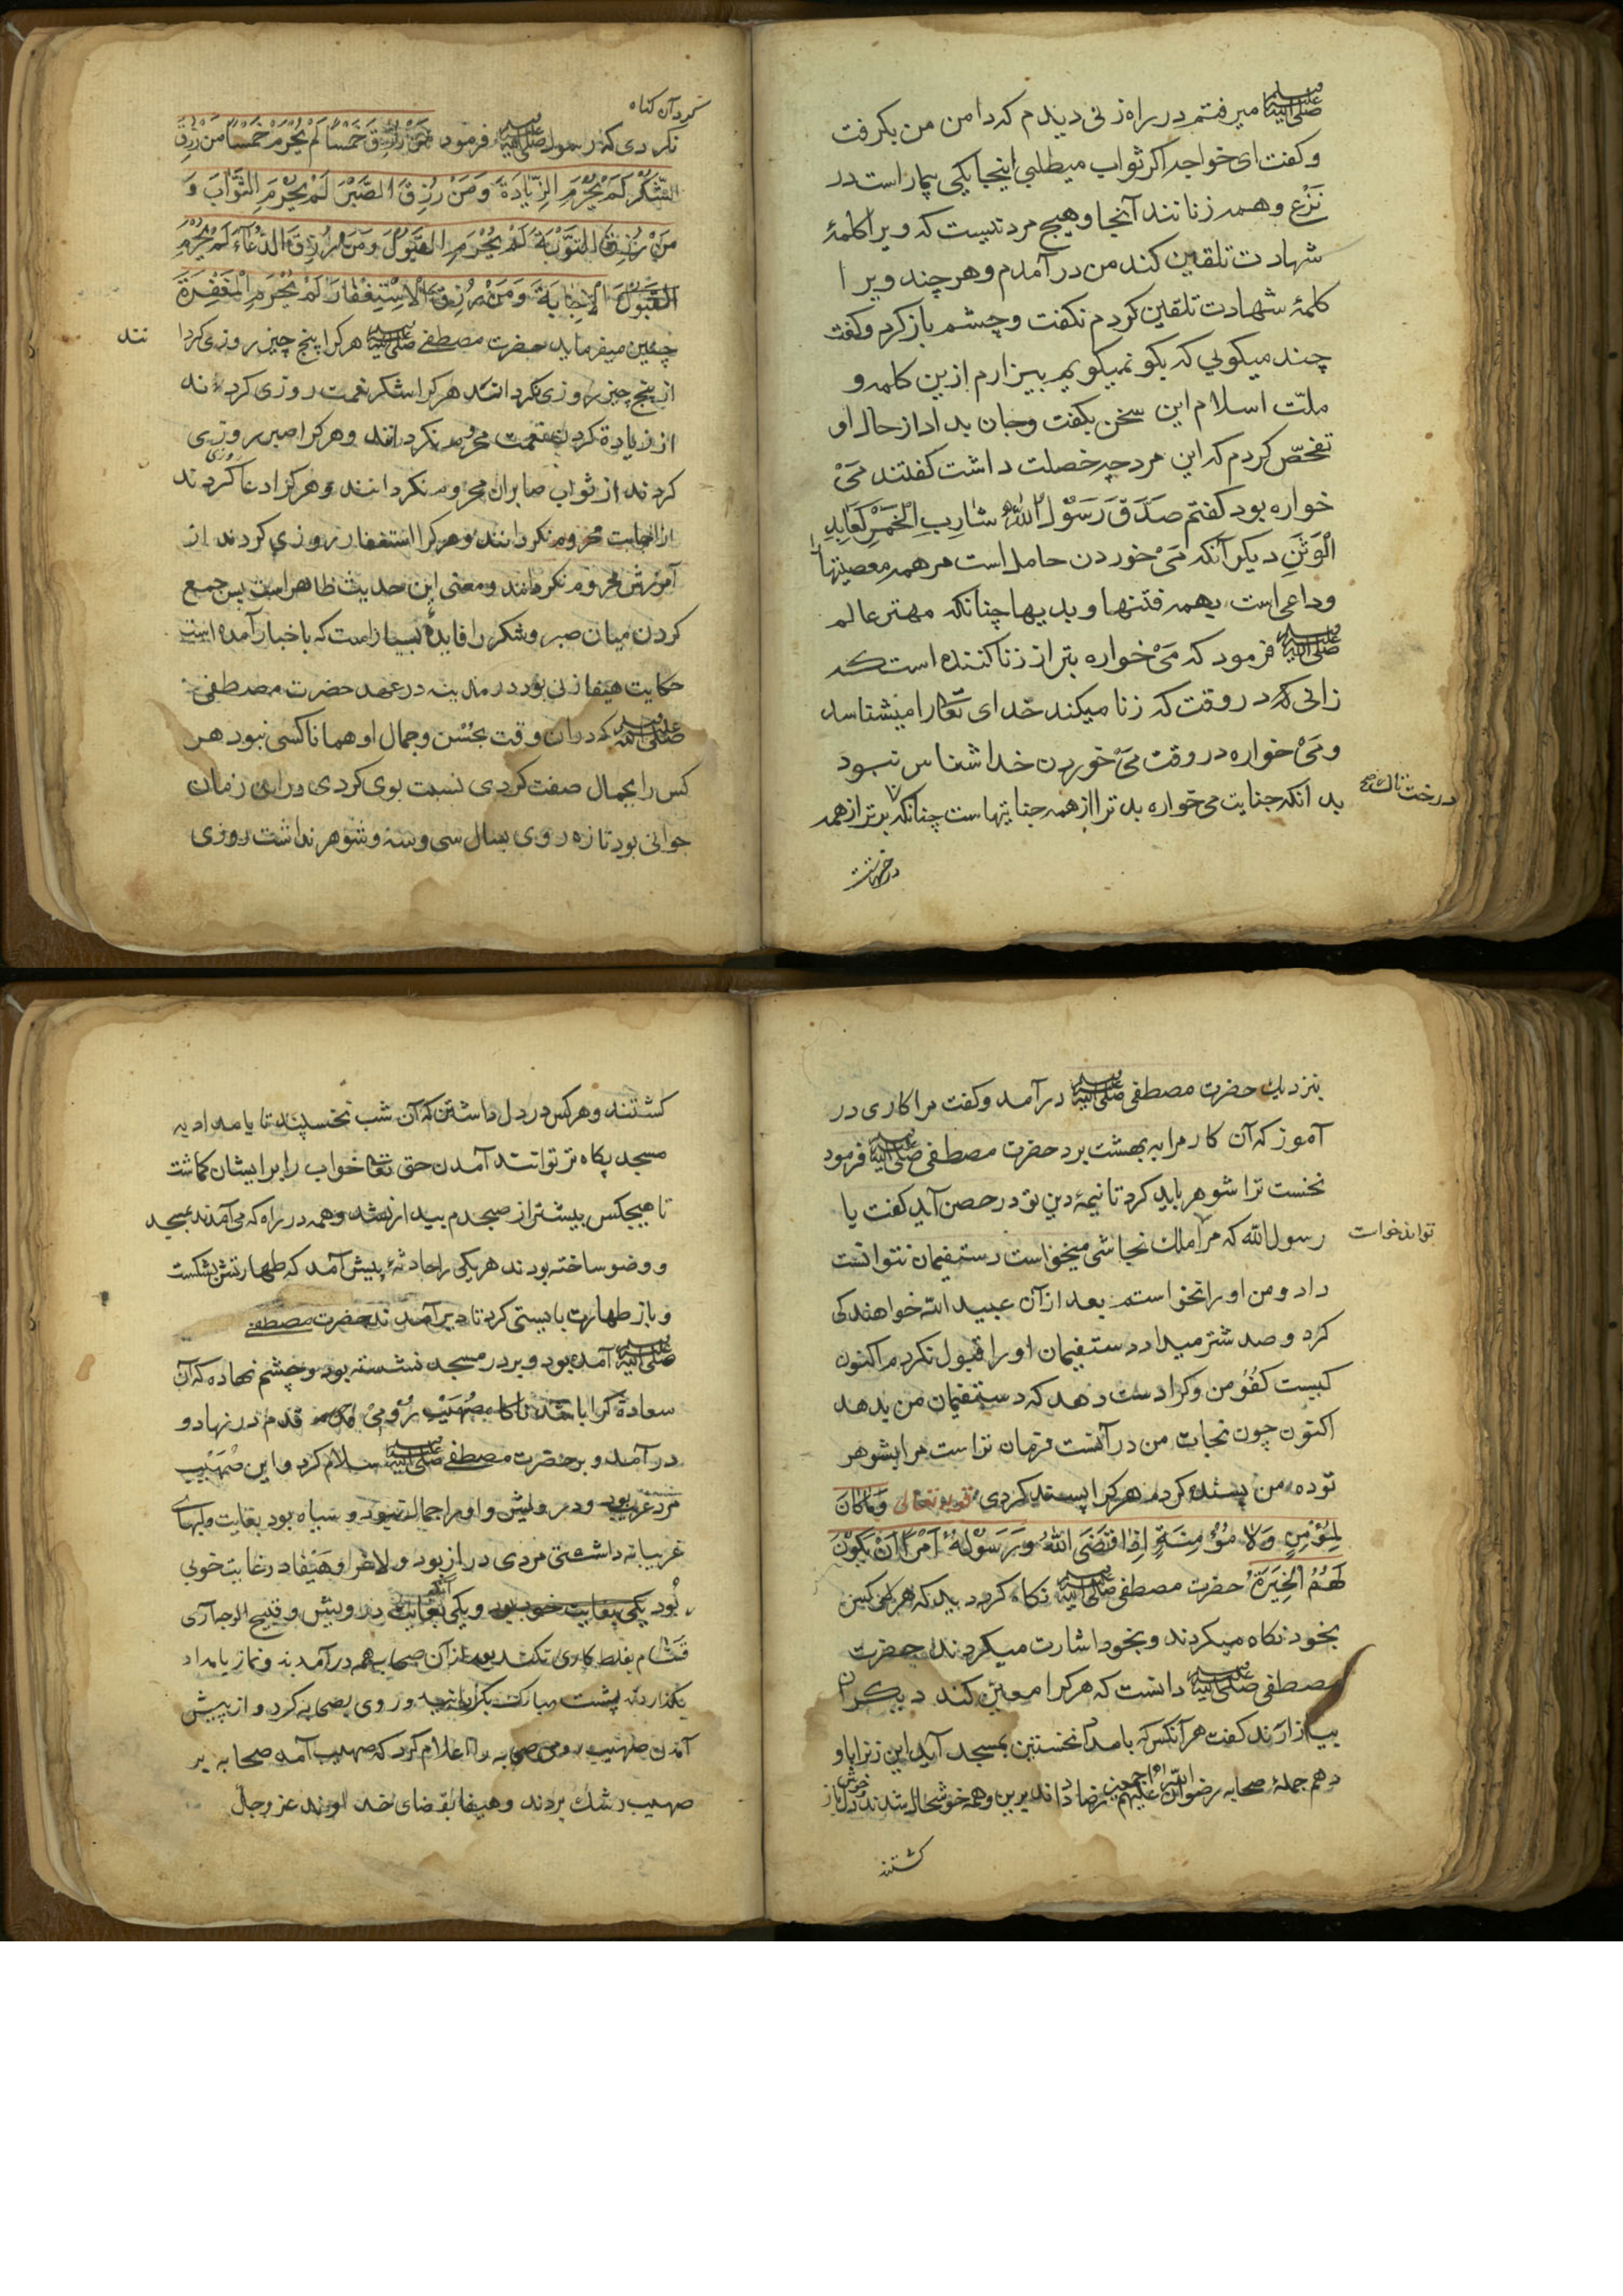 صلى الله عليه وسلم میرفتم در راه زنی دیدم که دامن من بکرفت
وکفت ای خواجه اکر ثواب میطلبی اینجا یکی بیمار است در
نَزْع وهمه زنانند آنجا وهیچ مرد نیست که ویرا کلمهٔ
شهادت تلقین کند من در آمدم وهر چند ویرا
کلمهٔ شهادت تلقین کردم نکفت وچشم باز کرد وکفت
چند میکویی که بکو نمیکویم بیزارم ازین کلمه و
ملّت اسلام این سخن بکفت وجان بداد از حال او
تفحّص کردم که این مرد چه خصلت داشت کفتند مَیْ
خواره بود کفتم صَدَقَ رَسُوْلُ اللّٰهِ شارِبِ الْخَمْرِ کَعَابِدِ
الْوَثَنِ دیکر آنکه مَیْ خوردن حامل است مر همه معصیتها
وداعی است بهمه فتنها وبدیها چنانکه مهتر عالم
صلى الله عليه وسلم فرمود که مَیْ خواره بتر از زنا کننده است که
زانی در وقت که زنا میکند خدای تعالی را میشناسد
ومَیْ خواره در وقت مَیْ خوردن خدا شناس نبود
بدانکه جنایت می خواره بدتر از همه جنایتهاست چنانکه بدتر از همه
درخت تاك
درختهاست
کرد آن کناه
نکردی که رسول صلى الله عليه وسلم فرمود مَنْ رُزِقَ خَمْسًا لَمْ یُحْرَمْ خَمْسًا مَنْ رُزِقَ
الشُّکْرَ لَمْ یُحْرَمِ الزِّیَادَةَ وَمَنْ رُزِقَ الصَّبْرَ لَمْ یُحْرَمِ الثَّوَابَ وَ
مَنْ رُزِقَ التَّوْبَةَ لَمْ یُحْرَمِ الْقَبُوْلَ وَمَنْ رُزِقَ الدُّعَآءَ لَمْ یُحْرَمِ
الْاِجَابَةَ وَمَنْ رُزِقَ الْاِسْتِغْفَارَ لَمْ یُحْرَمِ الْمَغْفِرَةَ
چنین میفرماید حضرت مصطفی صلى الله عليه وسلم هر کرا پنج چیز روزی کردا
نند
از پنج چیز روزی نکردانند هر کرا شکر نعمت روزی کردند
از زیادة کردن نعمت محروم نکردانند وهر کرا صبر روزی
کردند از ثواب صابران محروم نکردانند وهر کرا دعا روزی کردند
از اجابت محروم نکردانند وهر کرا استغفار روزی کردند از
آمرزش محروم نکردانند ومعنی این حدیث ظاهر است پس جمع
کردن میان صبر وشکر را فایدهٔ بسیار است که با خبار آمده است
حکایت هیفا زنی بود در مدینه در عهد حضرت مصطفی
صلى الله عليه وسلم که دران وقت بحُسْن وجمال او همانا کسی نبود هر
کس را بجمال صفت کردی نسبت بوی کردی دران زمان
جوانی بود تازه روی بسال سی وسه وشوهر نداشت روزی
بنزدیك حضرت مصطفی صلى الله عليه وسلم درآمد وکفت مرا کاری در
آموز که آن کار مرا به بهشت برد حضرت مصطفی صلى الله عليه وسلم فرمود
نخست ترا شوهر باید کرد تا نیمهٔ دین تو در حصن آید کفت یا
رسول الله که مرا ملك نجاشی میخواست دستپیمان نتوانست
تواند خواست
داد ومن او را نخواستم بعد از آن عبید الله خواهندکی
کرد وصد شتر میداد دستپیمان او را قبول نکردم اکنون
کیست کُفُوِ من وکرا دست دهد که دستپیمان من بدهد
اکنون چون نجات من در آنست فرمان تراست مرا بشوهر
توده من پسند کردم هر کرا پسند کردی قوله تعالی وَمَا کَانَ
لِمُؤْمِنٍ وَلَا مُؤْمِنَةٍ اِذَا قَضَی اللّٰهُ وَرَسُوْلُهُ اَمْرًا اَنْ یَکُوْنَ
لَهُمُ الْخِیَرَةُ حضرت مصطفی صلى الله عليه وسلم نکاه کرد دید که هر کسی
بخود نکاه میکردند وبخود اشارت میکردند حضرت
مصطفی صلى الله عليه وسلم دانست که هر کرا معیّن کند دیکران
بیازارند کفت هر آنکس که بامداد نخستین بمسجد آید این زنرا باو
دهم جملهٔ صحابه رضوان الله علیهم اجمعین رضا دادند برین وهمه خوشحال شدند
کشتند
کشتند وهر کس در دل داشتن که آن شب نخسپند تا بامداد به
مسجد پکاه تر توانند آمدن حق تعالی خواب را بر ایشان کماشت
تا هیچکس بیشتر از صبحدم بیدار نشد وهمه در راه که می آمدند بمسجد
ووضو ساخته بودند هر یکی را حادثهٔ پیش آمد که طهارتش بشکست
وباز طهارت بایستی کرد تا دیر آمدند حضرت مصطفی
صلى الله عليه وسلم آمده بود وبر در مسجد نشسته بود وچشم نهاده که آن
سعادة کرا باشد ناکاه صُهَیْبِ رُوْمِیْ قدم در نهاد و
در آمد وبر حضرت مصطفی صلى الله عليه وسلم سلام کرد واین صُهَیْبِ
مرد غریب بود ودرویش واو را جمال نبود وسیاه بود بغایت ولبهای
غریبانه داشتی مردی دراز بود ولاغر وهَیْفا در غایت خوبی
بود یکی بغایت خوب بود ویکی بغایت درویش وقبیح الوجه آری
قَسَّام بغلط کاری نکند بعد از آن صحابه همه درآمدند ونماز بامداد
بکذاردند پشت مبارك بکردانید وروی بصحابه کرد واز پیش
آمدن صهیب رومی صحابه را اعلام کرد که صهیب آمد صحابه بر
صهیب رشك بردند وهیفا بقضای خداوند عز وجل